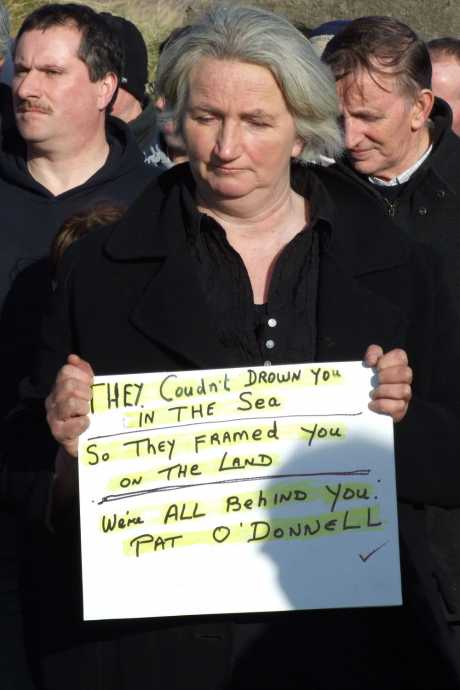 THEY Coudn't DROWN You
IN THE Sea
So THEY FRAMED You
ON THE LAND
We're ALL Behind You:
PAT O'DONNELL